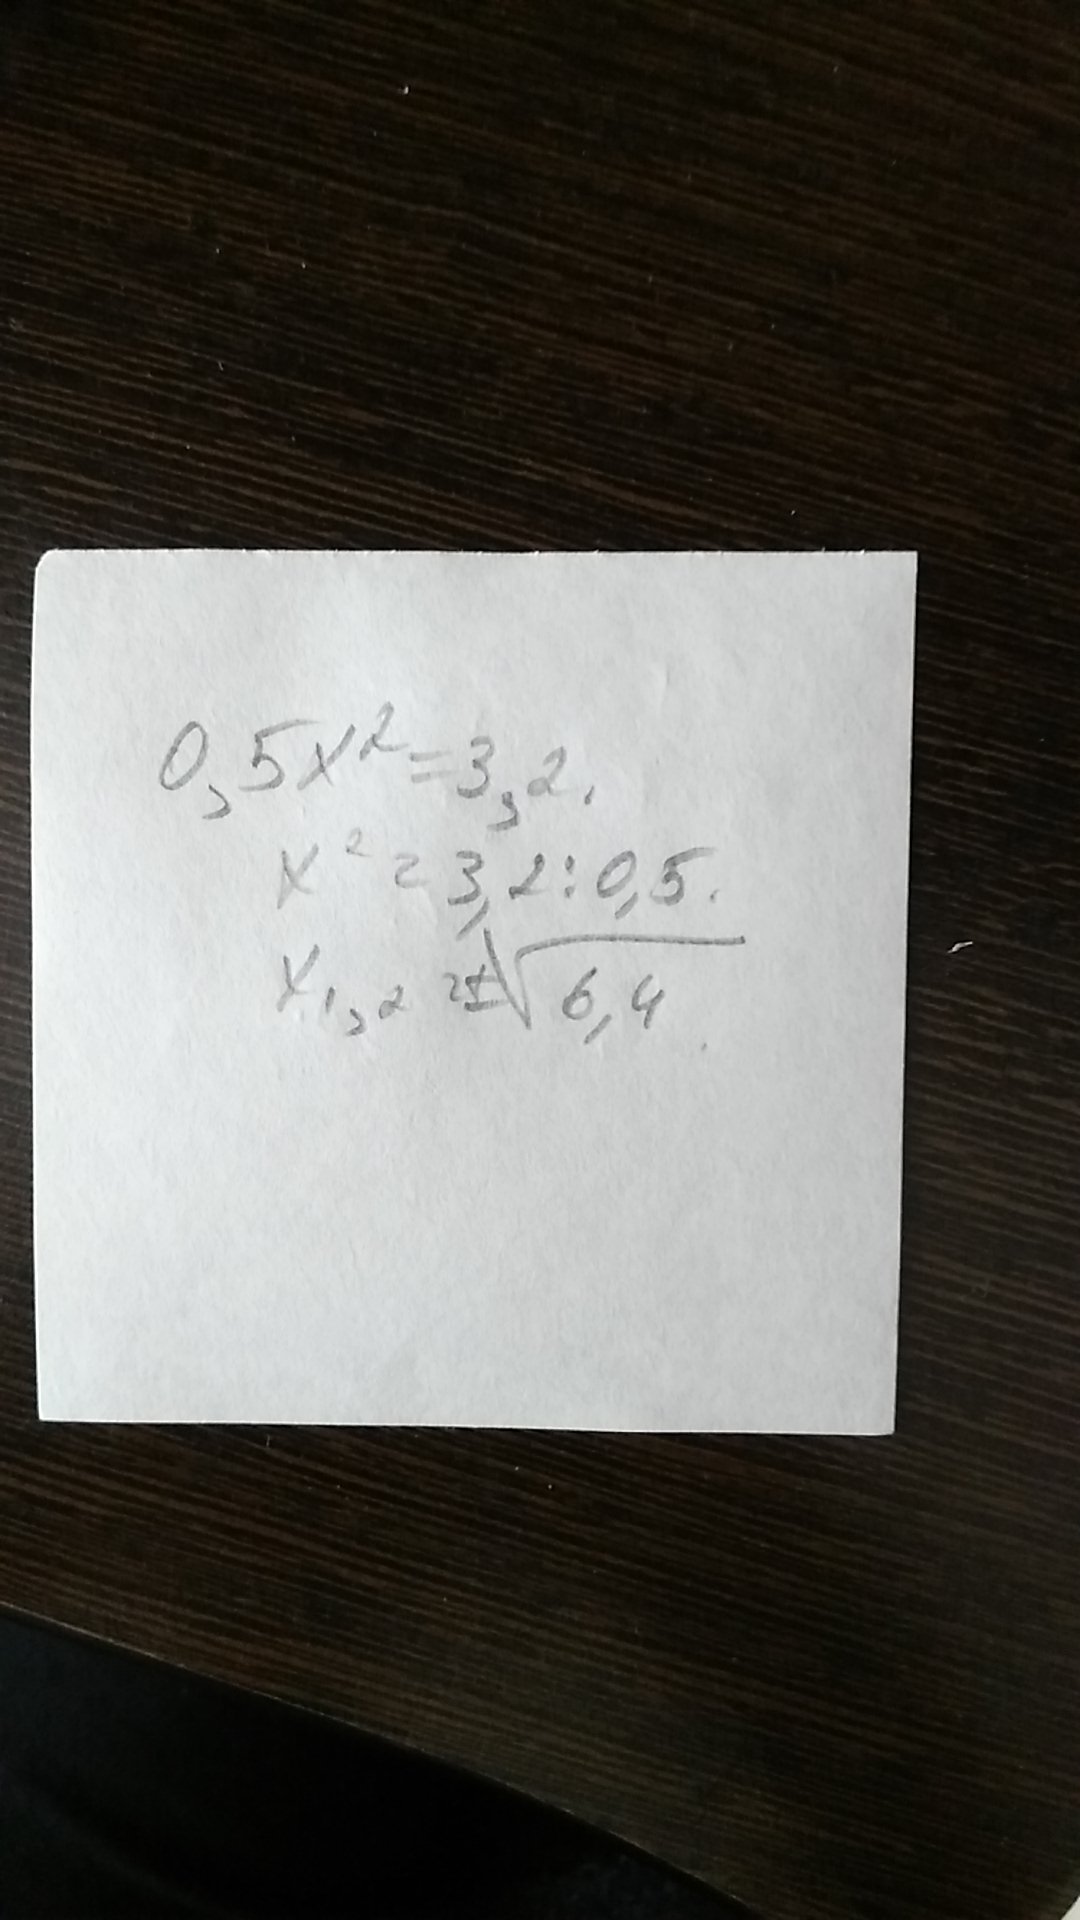 0,5x²=3,2.
x²=3,2:0,5.
x₁,₂=±√6,4